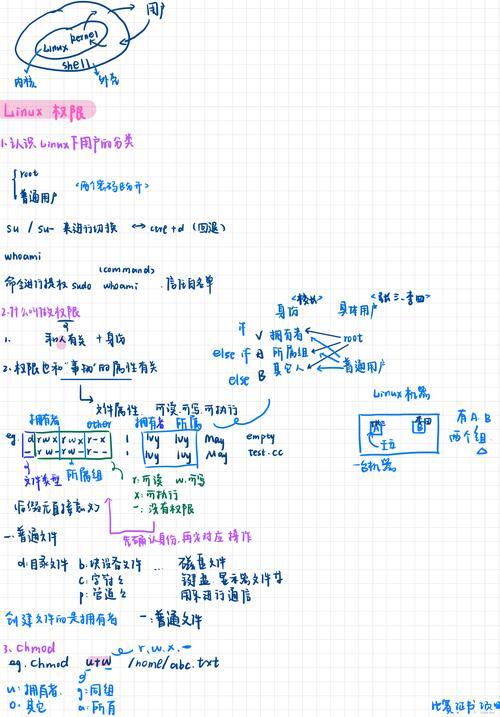 用户
Linux kernel
shell
内核
外壳
Linux 权限
1.认识 Linux下用户的分类
root
普通用户
<两个密码分开>
su / su- 来进行切换 ⟷ ctrl+d (回退)
whoami
(command)
命令进行提权 sudo whoami . 信任白名单
2.什么叫做权限
1. 和人有关 + 身份
2. 权限也和"事物"的属性有关
文件属性. 可读.可写.可执行
身份
具体用户
<张三.李四>
if 拥有者
else if 所属组
else 其它人
root
普通用户
Linux机器
一台机器
有A.B
两个组.
拥有者 other 拥有者 所属
eg. d rwx rwx r-x 1 lvy lvy May empty
- rw- rw- r-- 1 lvy lvy May test.cc
文件类型 所属组
r:可读 w.可写
x:可执行
-: 没有权限
先确认身份,再来对应操作
-:普通文件
d:目录文件 b.块设备文件 ... 磁盘文件
c:字符 〃 键盘.显示器文件
p:管道 〃 用来进行通信
创建文件的是拥有者 -:普通文件
3. chmod
r.w.x.-
eg. chmod u+w /home/abc.txt
u: 拥有者. g:同组
o: 其它 a: 所有